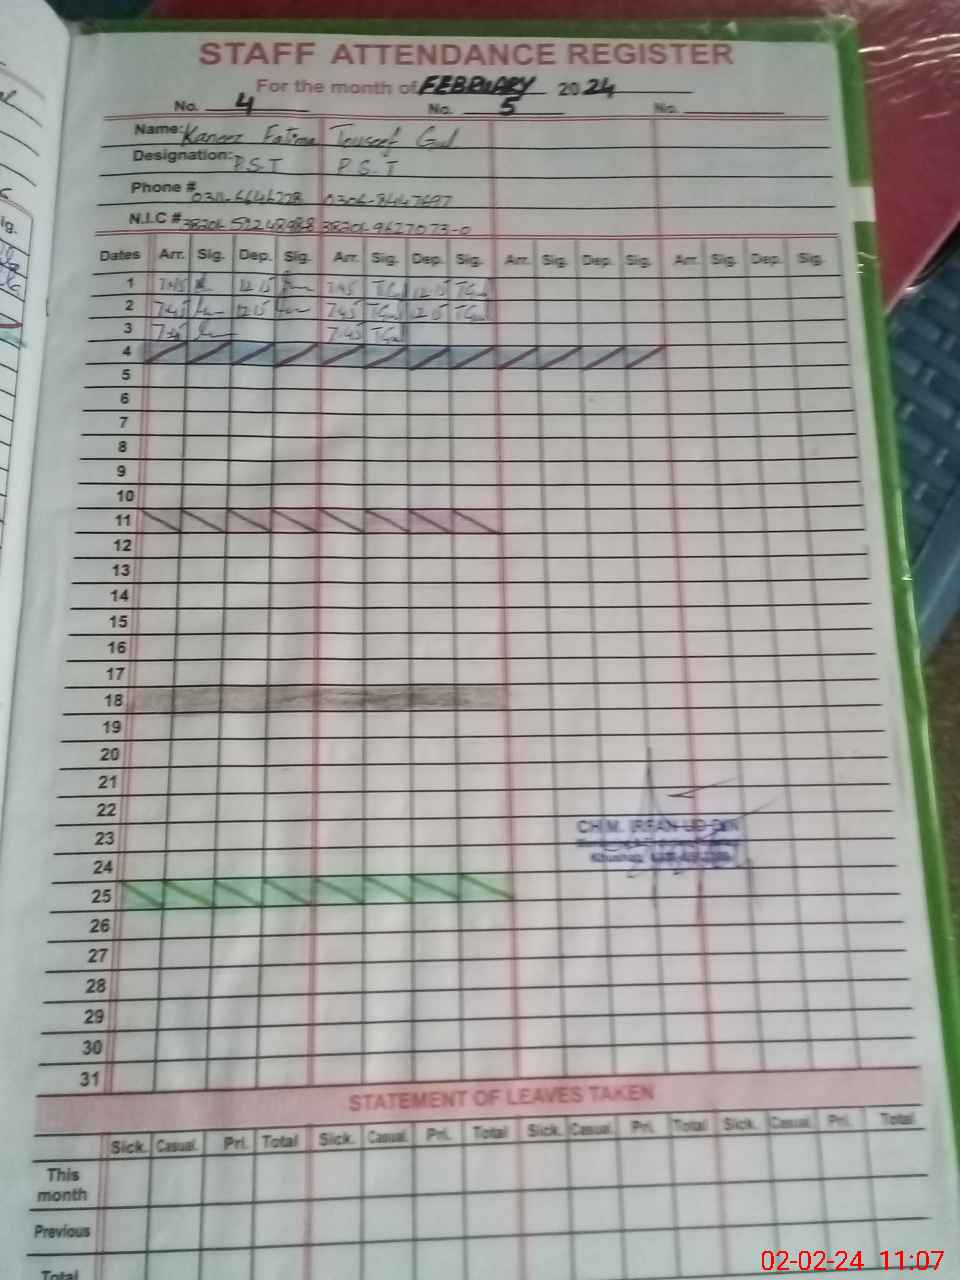 STAFF ATTENDANCE REGISTER
For the month of FEBRUARY 2024
No. 4 No. 5 No.
Name: Kaneez Fatima Touseef Gul
Designation: P.S.T P.S.T
Phone #
N.I.C # 38201-9627073-0
Dates Arr. Sig. Dep. Sig. Arr. Sig. Dep. Sig. Arr. Sig. Dep. Sig. Arr. Sig. Dep. Sig.
1 7:45 12 15 7:45 TGul 12 15 TGul
2 7:45 12 15 7:45 TGul 12 15 TGul
3 7:45 7:45 TGul
4
5
6
7
8
9
10
11
12
13
14
15
16
17
18
19
20
21
22
CH M. IRFAN-UD-DIN
23
Khushab
24
25
26
27
28
29
30
31
STATEMENT OF LEAVES TAKEN
Sick. Casual. Pri. Total Sick. Casual. Pri. Total Sick. Casual. Pri. Total Sick. Casual. Pri. Total
This
month
Previous
Total
02-02-24 11:07